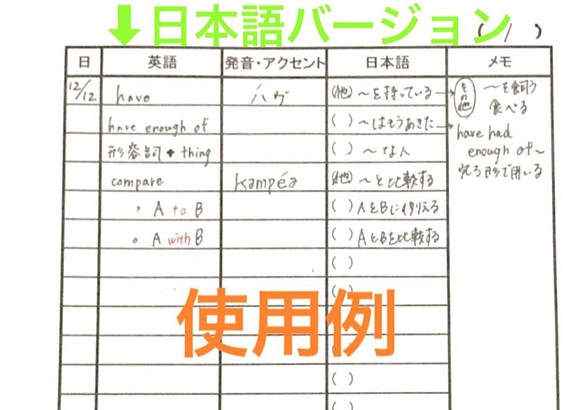 ⬇日本語バージョン
( / )
日 英語 発音・アクセント 日本語 メモ
12/12 have ハヴ (他) ~を持っている その他 ~を飼う
食べる
have enough of ( ) ~はもうあきた have had
enough of~
完了形で用いる
形容詞 + thing ( ) ~な人
compare kəmpéə (他) ~と比較する
・ A to B ( ) AをBに例える
・ A with B ( ) AとBを比較する
( )
( )
使用例
( )
( )